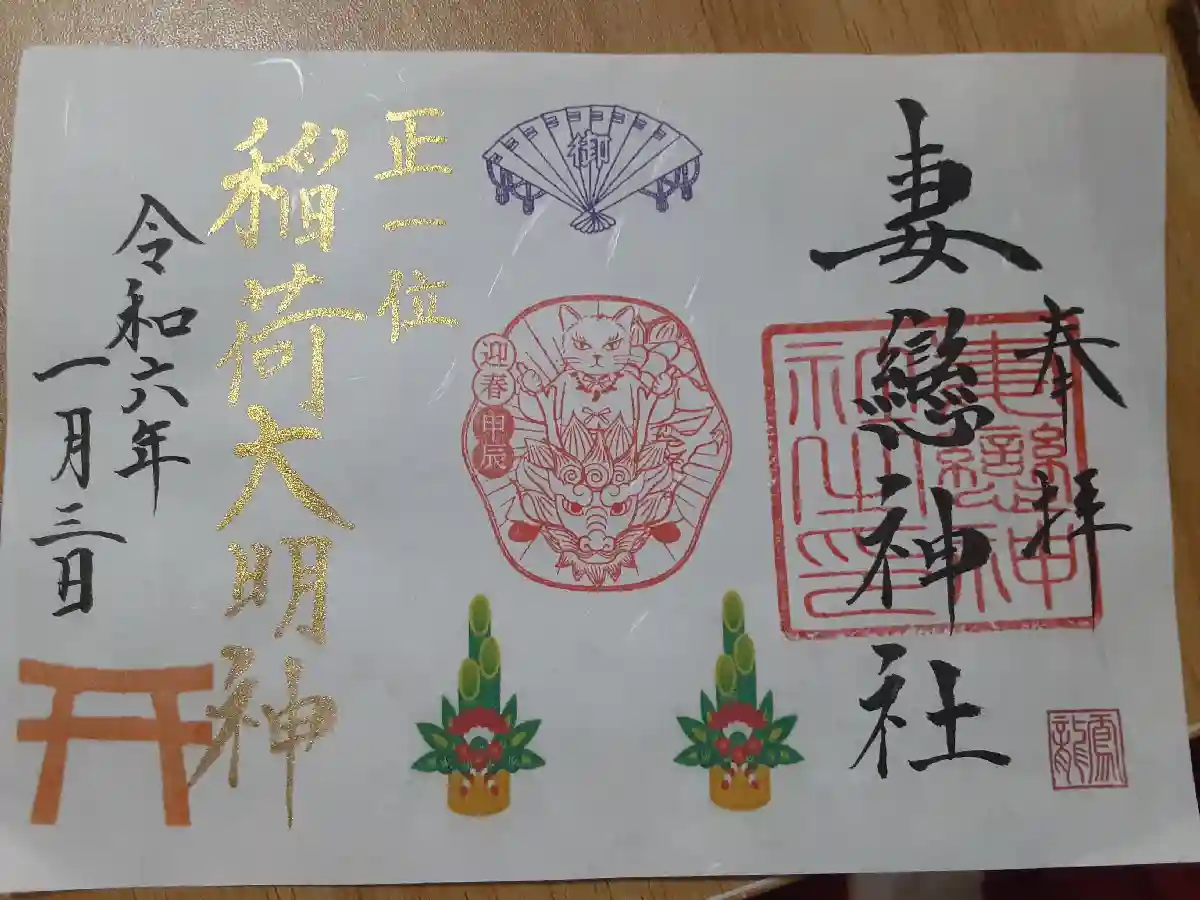 奉拝
妻戀神社
妻戀神
社之印
御
迎春
甲辰
正一位
稲荷大明神
令和六年
一月三日